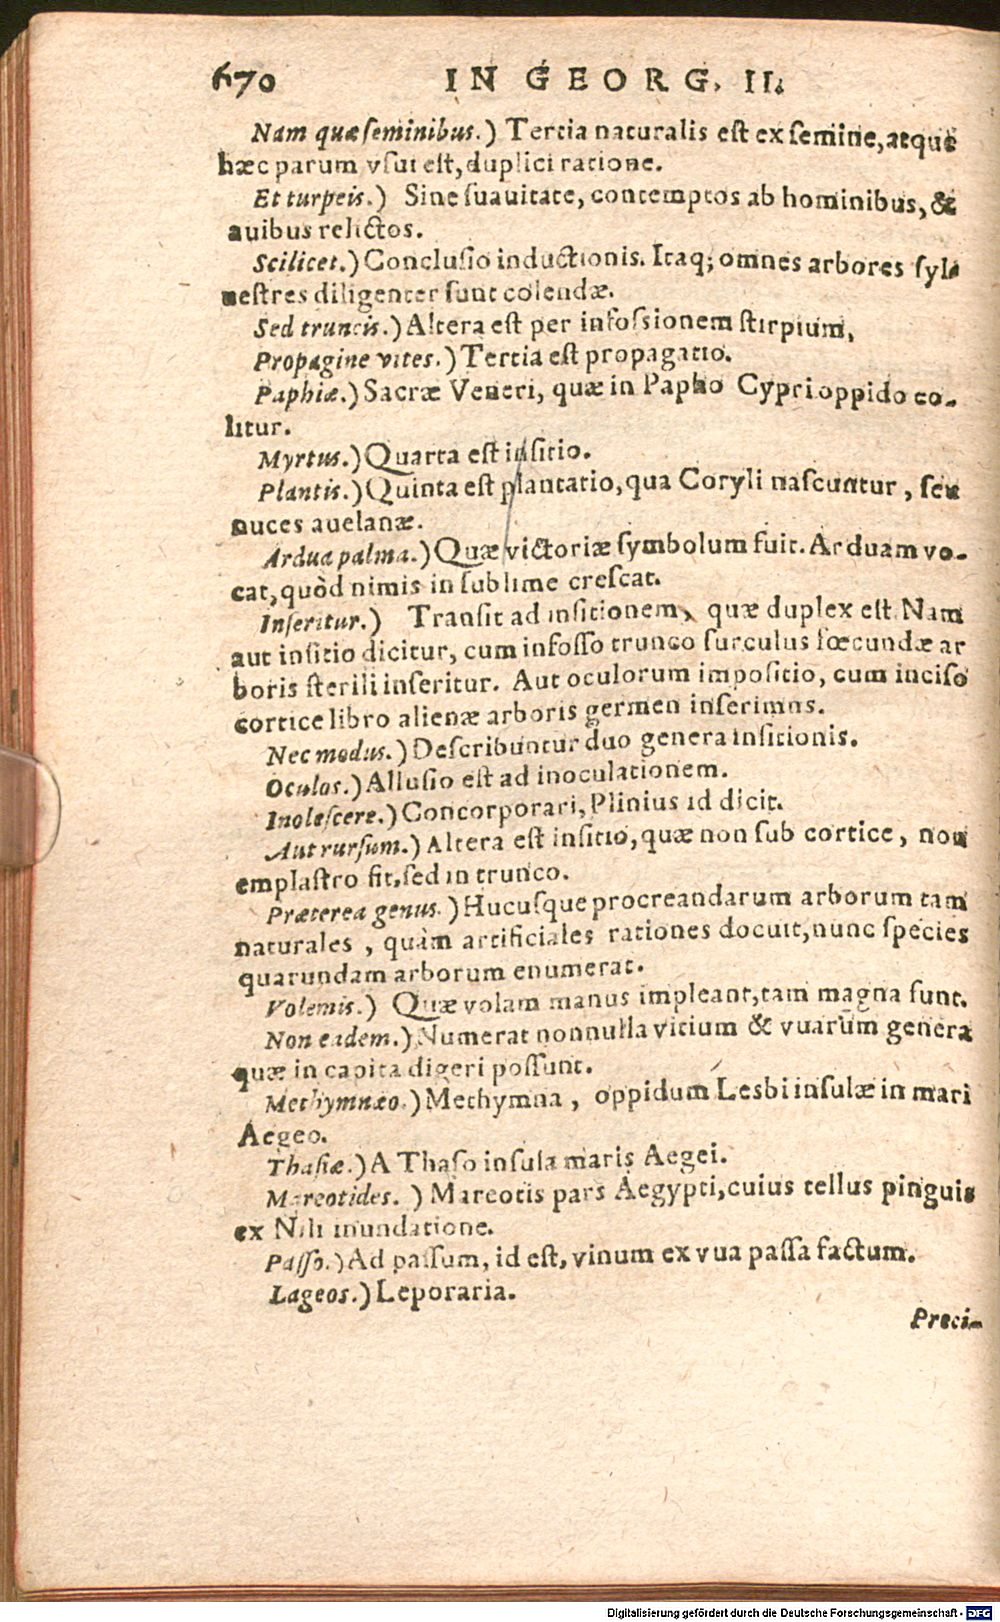 670 IN GEORG. II.
Nam quæ seminibus.) Tertia naturalis est ex semine, atque
hæc parum vsui est, duplici ratione.
Et turpeis.) Sine suauitate, contemptos ab hominibus, &
auibus relictos.
Scilicet.) Conclusio inductionis. Itaq; omnes arbores syl-
uestres diligenter sunt colendæ.
Sed truncis.) Altera est per infossionem stirpium,
Propagine vites.) Tertia est propagatio.
Paphiæ.) Sacræ Veneri, quæ in Papho Cypri oppido co-
litur.
Myrtus.) Quarta est insitio.
Plantis.) Quinta est plantatio, qua Coryli nascuntur, seu
nuces avelanæ.
Ardua palma.) Quæ victoriæ symbolum fuit. Arduam vo-
cat, quòd nimis in sublime crescat.
Inseritur.) Transit ad insitionem, quæ duplex est. Nam
aut insitio dicitur, cum infosso trunco surculus fœcundæ ar
boris sterili inseritur. Aut oculorum impositio, cum inciso
cortice libro alienæ arboris germen inserimus.
Nec modus.) Describuntur duo genera insitionis.
Oculos.) Allusio est ad inoculationem.
Inolescere.) Concorporari, Plinius id dicit.
Aut rursum.) Altera est insitio, quæ non sub cortice, non
emplastro fit, sed in trunco.
Præterea genus.) Hucusque procreandarum arborum tam
naturales, quàm artificiales rationes docuit, nunc species
quarundam arborum enumerat.
Volemis.) Quæ volam manus impleant, tam magna sunt.
Non eadem.) Numerat nonnulla vitium & vuarum genera
quæ in capita digeri possunt.
Methymnæo.) Methymna, oppidum Lesbi insulæ in mari
Aegeo.
Thasiæ.) A Thaso insula maris Aegei.
Mareotides.) Mareotis pars Aegypti, cuius tellus pinguis
ex Nili inundatione.
Passo.) Ad passum, id est, vinum ex vua passa factum.
Lageos.) Leporaria.
Preci-
Digitalisierung gefördert durch die Deutsche Forschungsgemeinschaft - DFG